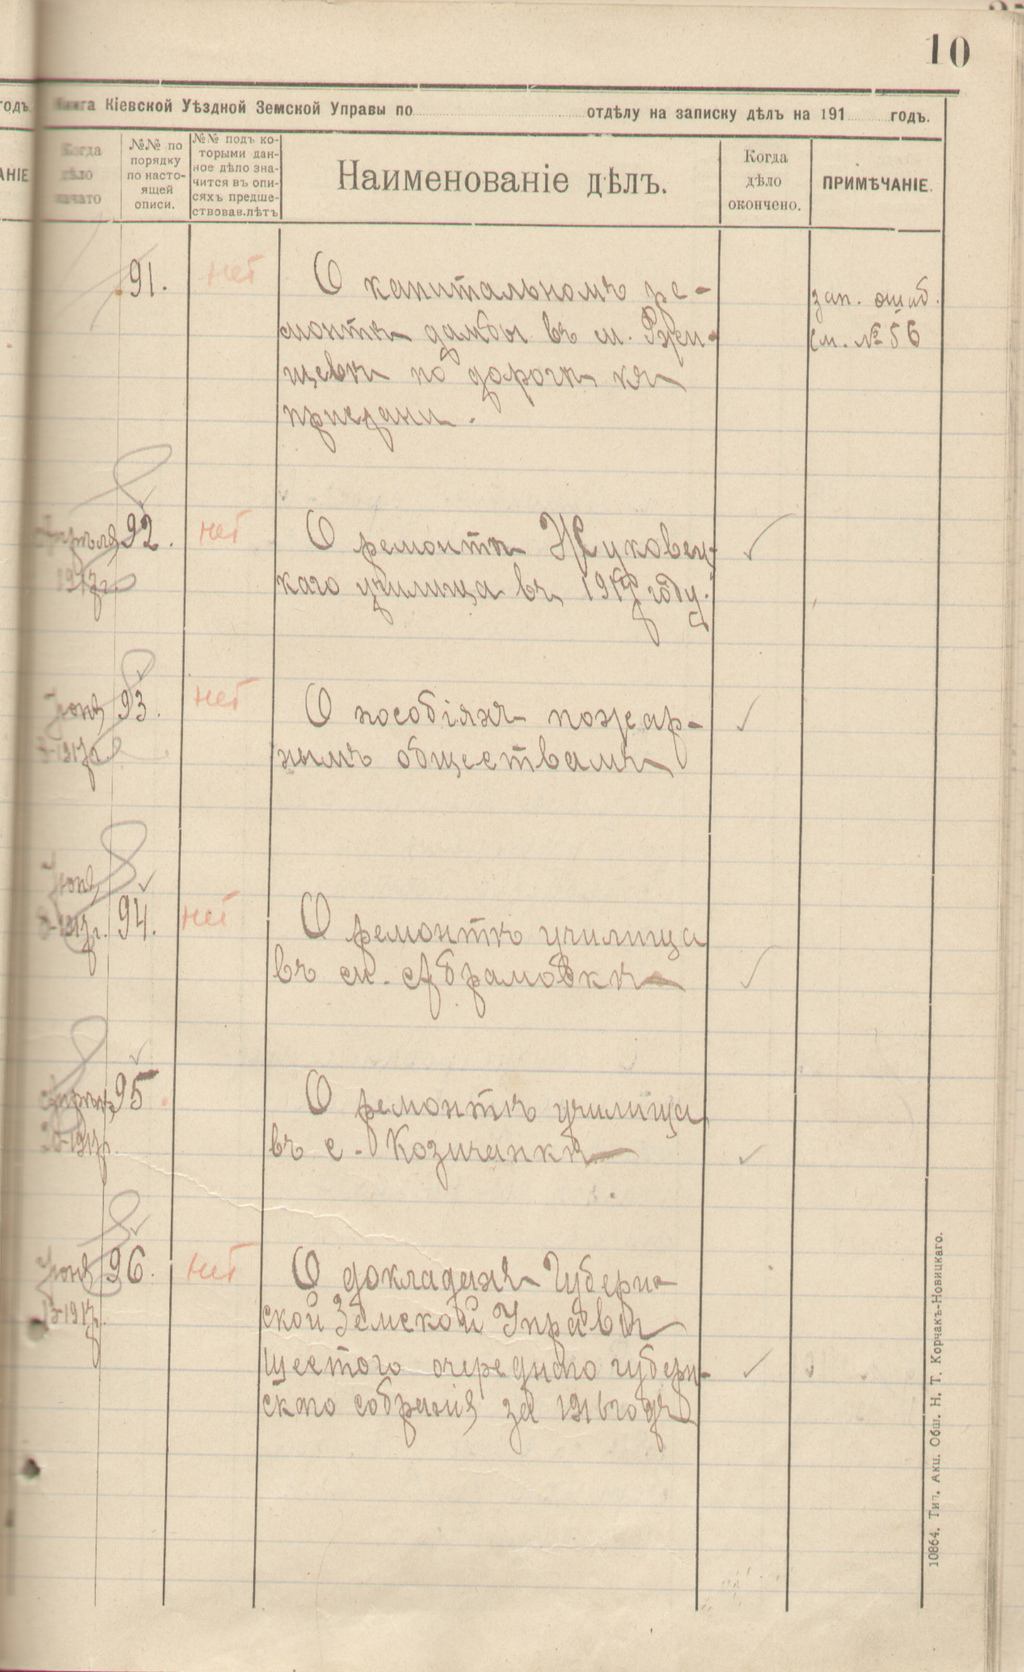 10
годъ.
Книга Кіевской Уѣздной Земской Управы по отдѣлу на записку дѣлъ на 191 годъ.
АНІЕ
Когда дѣло начато
№№ по порядку по насто-ящей описи.
№№ подъ ко-торыми дан-ное дѣло зна-чится въ опи-сяхъ предше-ствовав.лѣтъ
Наименованіе дѣлъ.
Когда дѣло окончено.
ПРИМѢЧАНІЕ.
91. нет О капитальномъ ре-
монтѣ дамбы въ м. Ржи-
щевѣ по дорогѣ къ
пристани.
зап. ошиб.
см. № 56
Апрѣля 92. нет О ремонтѣ Жуковец-
1917г. каго училища въ 1917 году.
Іюня 93. нет О пособіяхъ пожар-
1917г. нымъ обществамъ
Іюня
1917г. 94. нет О ремонтѣ училища
въ м. Абрамовкѣ
95 О ремонтѣ училища
20-1917г. въ с. Козичанкѣ
Іюня 96. нет О докладахъ Губерн-
13-1917г. ской Земской Управы
шестого очередного губерн-
скаго собранія за 1916 годъ
10864. Тип. Акц. Общ. Н. Т. Корчакъ-Новицкаго.